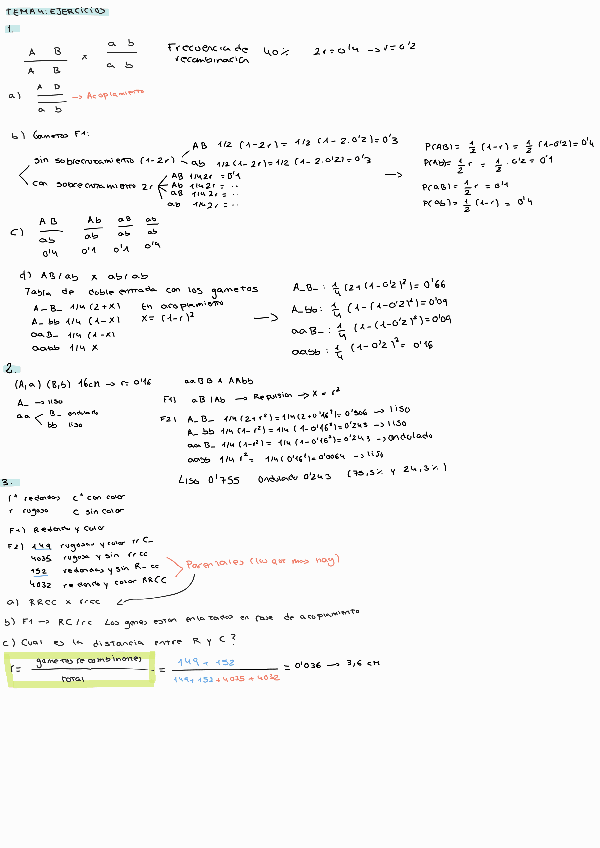 TEMA 4: EJERCICIOS
1.
A B / A B x a b / a b Frecuencia de recombinación 40% 2r = 0'4 → r = 0'2
a) A B / a b → Acoplamiento
b) Gametos F1:
sin sobrecruzamiento (1-2r)
AB 1/2 (1-2r) = 1/2 (1-2·0'2) = 0'3
ab 1/2 (1-2r) = 1/2 (1-2·0'2) = 0'3
con sobrecruzamiento 2r
AB 1/4 2r = 0'1
Ab 1/4 2r = ..
aB 1/4 2r = ..
ab 1/4 2r = ..
→
P(AB) = 1/2 (1-r) = 1/2 (1-0'2) = 0'4
P(Ab) = 1/2 r = 1/2 · 0'2 = 0'1
P(aB) = 1/2 r = 0'1
P(ab) = 1/2 (1-r) = 0'4
c) AB/ab Ab/ab aB/ab ab/ab
0'4 0'1 0'1 0'4
d) AB/ab x ab/ab
Tabla de doble entrada con los gametos
A_B_ 1/4 (2+X) En acoplamiento
A_bb 1/4 (1-X) X = (1-r)²
aaB_ 1/4 (1-X)
aabb 1/4 X
→
A_B_ : 1/4 (2 + (1-0'2)²) = 0'66
A_bb : 1/4 (1-(1-0'2)²) = 0'09
aaB_ : 1/4 (1-(1-0'2)²) = 0'09
aabb : 1/4 (1-0'2)² = 0'16
2.
(A,a) (B,b) 16cM → r = 0'16 aaBB x AAbb
A_ → liso
aa B_ ondulado
bb liso
F1) aB/Ab → Repulsión → X = r²
F2) A_B_ 1/4 (2+r²) = 1/4 (2+0'16²) = 0'506 → liso
A_bb 1/4 (1-r²) = 1/4 (1-0'16²) = 0'243 → liso
aaB_ 1/4 (1-r²) = 1/4 (1-0'16²) = 0'243 → ondulado
aabb 1/4 r² = 1/4 (0'16²) = 0'0064 → liso
Liso 0'755 Ondulado 0'243 (75,5% y 24,3%)
3.
r⁺ redondos c⁺ con color
r rugoso c sin color
F1) Redondo y color
F2) 149 rugosas y color rrC_
4035 rugosa y sin rrcc
152 redondas y sin R_cc
4032 redondo y color RRCC
Parentales (los que mas hay)
a) RRCC x rrcc
b) F1 → RC/rc Los genes estan enlazados en fase de acoplamiento
c) Cual es la distancia entre R y C?
r = gametos recombinantes / total = 149 + 152 / 149 + 152 + 4035 + 4032 = 0'036 → 3,6 cM